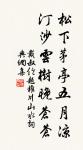 松下茅亭五月涼
汀沙雲樹晚蒼蒼
戴叔倫題稚川山水詞